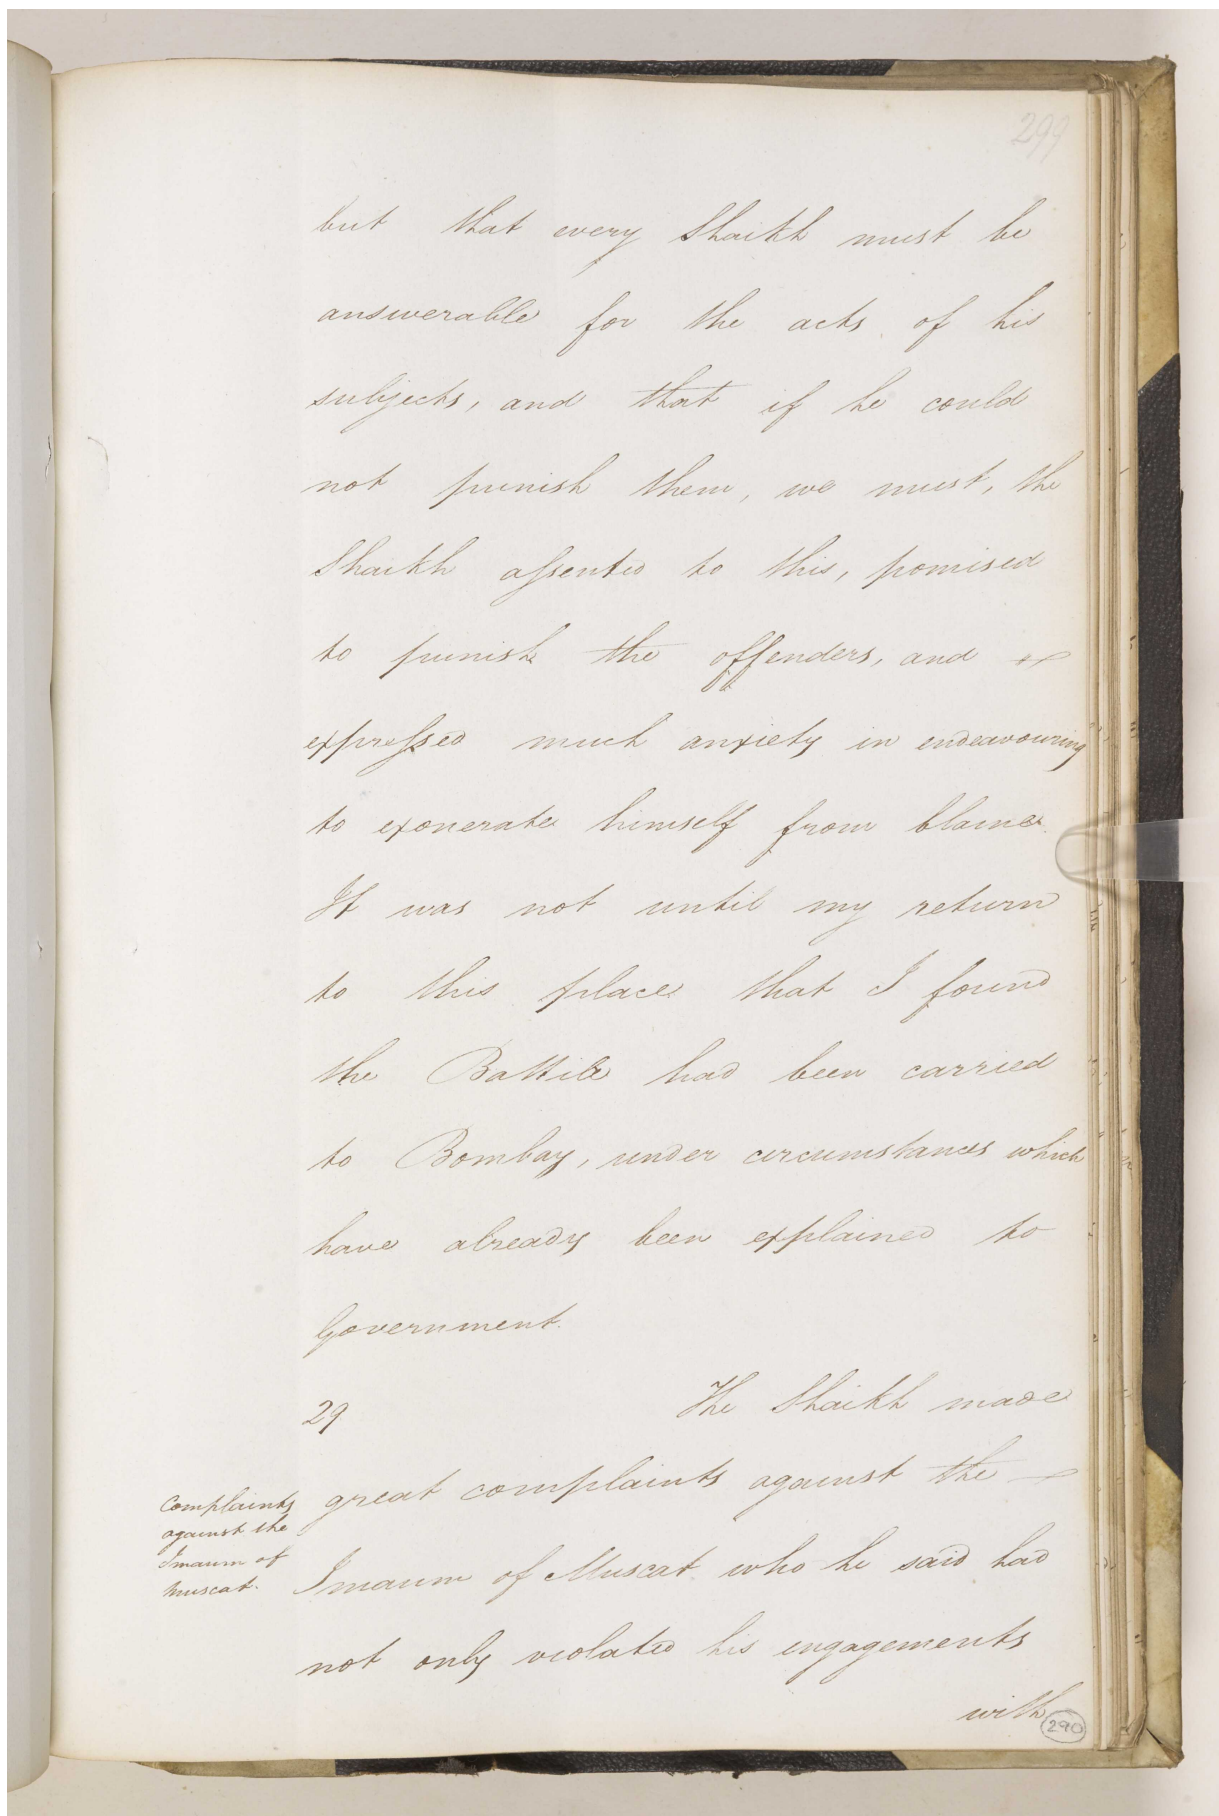 299
but that every Shaikh must be
answerable for the acts of his
subjects, and that if he could
not punish them, we must, the
Shaikh assented to this, promised
to punish the offenders, and
expressed much anxiety in endeavouring
to exonerate himself from blame.
It was not until my return
to this place that I found
the Battile had been carried
to Bombay, under circumstances which
have already been explained to
Government.
29 The Shaikh made
Complaints
against the
Imaum of
Muscat.
great complaints against the
Imaum of Muscat who he said had
not only violated his engagements
with
290